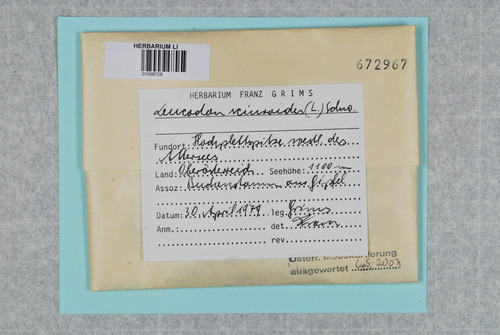 HERBARIUM LI
672967
HERBARIUM FRANZ GRIMS
Leucodon sciuroides (L.) Schw.
Fundort: Hochplettspitze westl. des
Attersees
Land: Oberösterreich Seehöhe: 1100 m
Assoz: Buchenstamm am Gipfel
Datum: 30. April 1979 leg. Grims
Anm.: det.
rev.
Österr. Mooskartierung
ausgewertet 2003